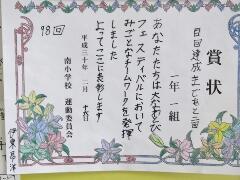 賞状
目目達成まであと二回
一年一組
あなたたちは大なわとび
フェスティバルにおいて
みごとなチームワークを発揮
しました
よってここに表彰します
平成三十年 二月 十六日
南小学校 運動委員会
98回